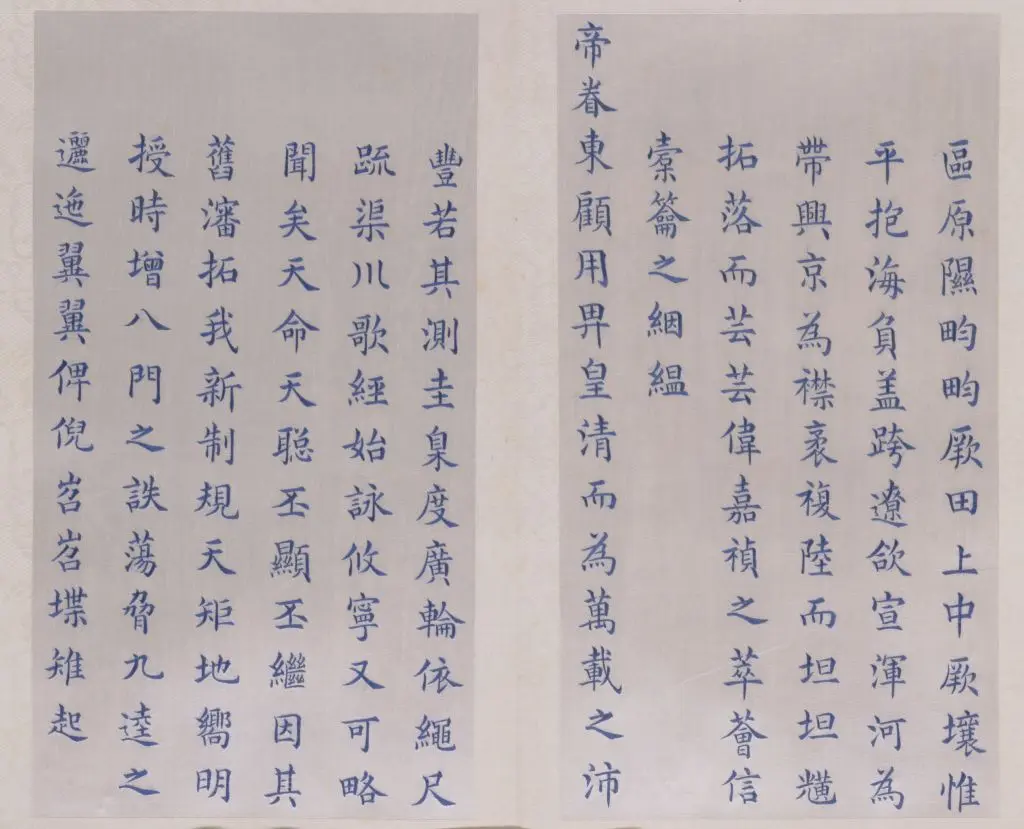 區原隰畇畇厥田上中厥壤惟
平抱海負盖跨遼欱宣渾河為
帶興京為襟袤複陸而坦坦
拓落而芸芸偉嘉禎之萃薈信
橐籥之絪縕
帝眷東顧用畀皇清而為萬載之沛
豐若其測圭臬度廣輪依繩尺
疏渠川歌經始詠攸寧又可略
聞矣天命天聰丕顯丕繼因其
舊瀋拓我新制規天矩地嚮明
授時增八門之詄蕩脅九逵之
邐迤翼翼俾倪岧岧堞雉起